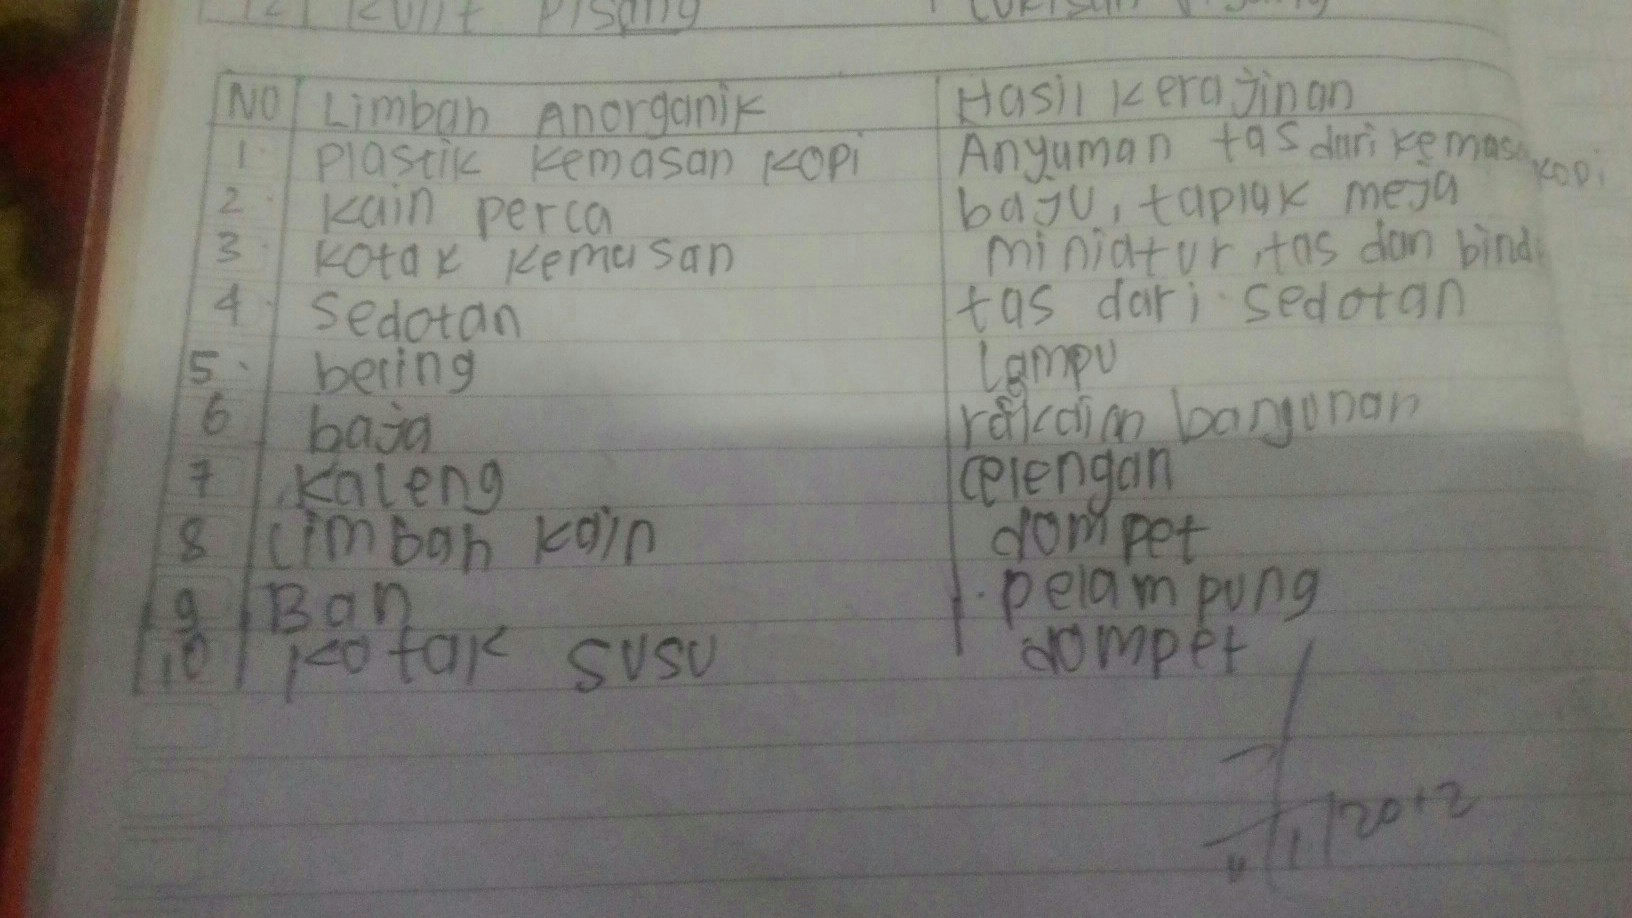 Kulit pisang
NO Limbah Anorganik Hasil kerajinan
1. Plastik kemasan kopi Anyaman tas dari kemasan kopi
2. kain perca baju, taplak meja
3. kotak kemasan miniatur, tas dan bind
4. Sedotan tas dari sedotan
5. beling Lampu
6 baja bangunan
7 kaleng celengan
8 Limbah kain dompet
9 Ban pelampung
10 kotak susu dompet